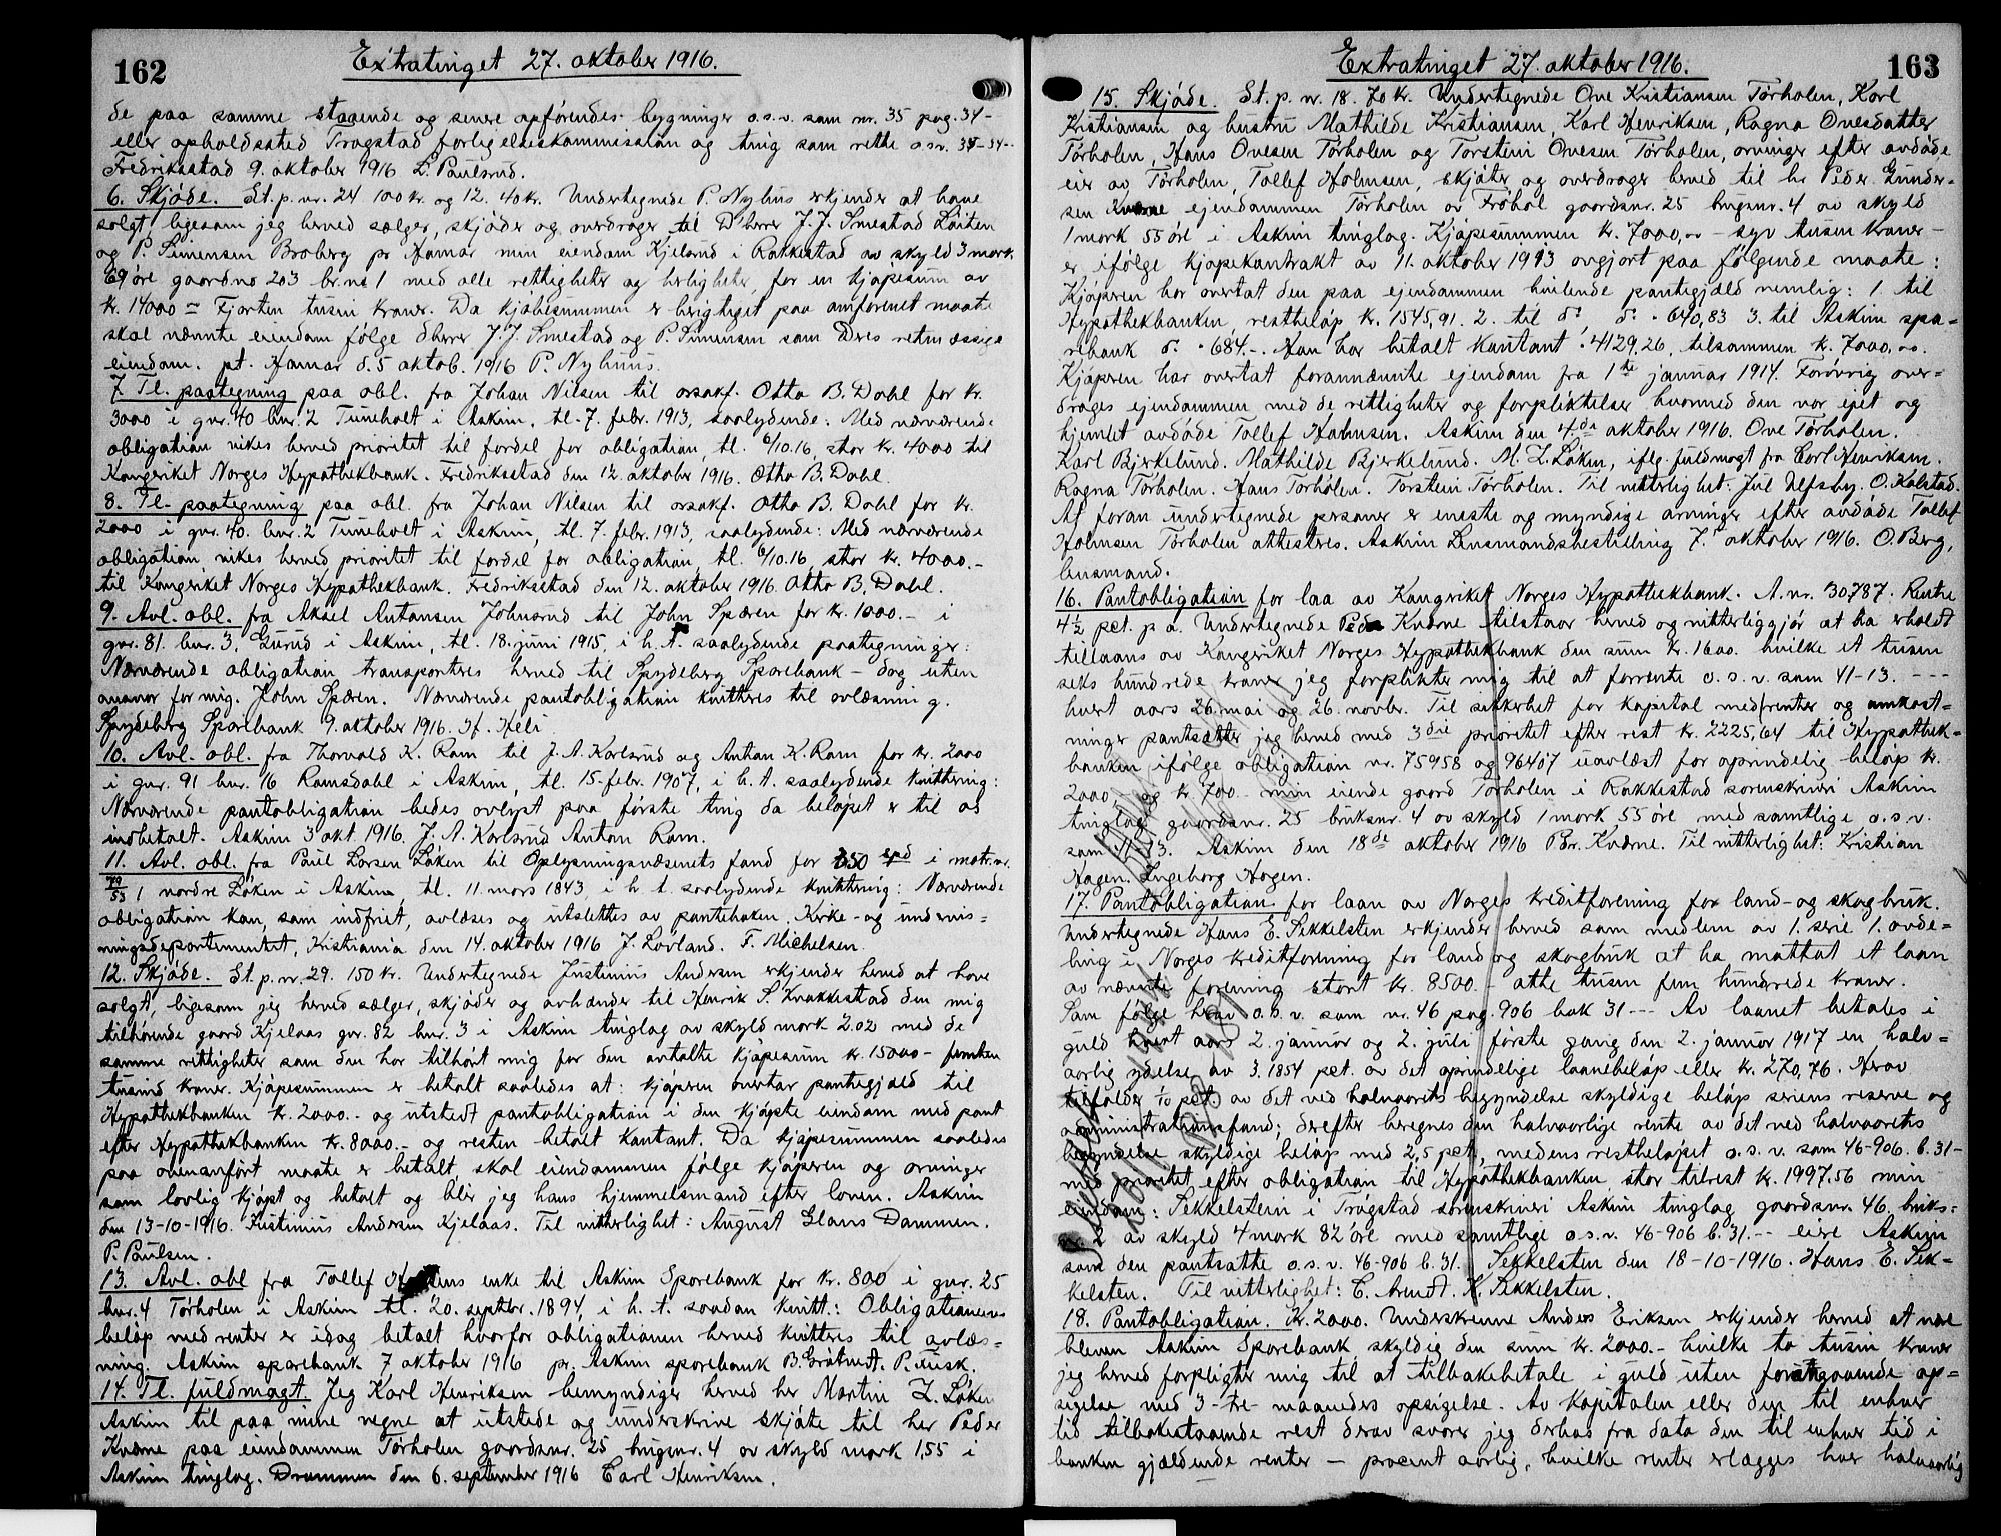 162
Extratinget 27. oktober 1916.
de paa samme staaende og senere opførendes bygninger o.s.v. som nr. 35 pag. 34-
eller opholdssted Trøgstad forligelseskommission og ting som rette o.s.v. 35-34--
Fredriksstad 9. oktober 1916 L. Paulsrud.
6. Skjøde. St. p. nr. 24 100 kr. og 12. 40 kr. Undertegnede P. Nyhus erkjender at have
solgt ligesom jeg herved sælger, skjøder og overdrager til D'herrer J. J. Smestad Løiten
og P. Simensen Broberg pr Hamar min eiendom Kjelsrud i Rakkestad av skyld 3 mark
69 øre gaardno 203 br. no 1 med alle rettigheter og herligheter, for en kjøpesum av
kr. 14000 = Fjorten tusen kroner. Da kjøbesummen er berigtiget paa omforenet maate
skal nævnte eiendom følge dherrer J. J. Smestad og P. Simensen som Deres retmæssige
eiendom. pt. Hamar d. 5 oktob. 1916 P. Nyhuus.
7. Tl. paategning paa obl. fra Johan Nilsen til orsakf. Otto B. Dahl for kr.
3000 i gnr. 40 bnr. 2 Tuneholt i Askim, tl. 7. febr. 1913, saalydende: Med nærværende
obligation vikes herved prioritet til fordel for obligation, tl. 6/10.16, stor kr. 4000 til
Kongeriket Norges Hypothekbank. Fredriksstad den 12. oktober 1916. Otto B. Dahl.
8. Tl. paategning paa obl. fra Johan Nilsen til orsakf. Otto B. Dahl for kr.
2000 i gnr. 40. bnr. 2 Tuneholt i Askim, tl. 7. febr. 1913, saalydende: Med nærværende
obligation vikes herved prioritet til fordel for obligation, tl. 6/10.16, stor kr. 4000.-
til Kongeriket Norges Hypothekbank. Fredriksstad den 12. oktober 1916. Otto B. Dahl.
9. Avl. obl. fra Aksel Antonsen Johnsrud til John Spæren for kr. 1000.- i
gnr. 81. bnr. 3, Gurud i Askim, tl. 18. juni 1915, i h. t. saalydende paategninger:
Nærværende obligation transporteres herved til Spydeberg Sparebank - dog uten
ansvar for mig. John Spæren. Nærværende pantobligation kvitteres til avlæsning.
Spydeberg Sparebank 9. oktober 1916. H. Heli
10. Avl. obl. fra Thorvald K. Ram til J. A. Karlsrud og Anton K. Ram for kr. 2000
i gnr. 91 bnr. 16 Ramsdahl i Askim, tl. 15. febr. 1907, i h. t. saalydende kvittering:
Nærværende pantobligation bedes avlyst paa første ting da beløpet er til os
indbetalt. Askim 3 okt 1916. J. A. Karlsrud Anton Ram.
11. Avl. obl. fra Paul Larsen Løken til Oplysningsvæsenets fond for 350 spd i matr. nr.
79/53 1 nordre Løken i Askim, tl. 11. mars 1843, i h. t. saalydende kvittering: Nærværende
obligation kan, som indfriet, avlæses og utslettes av panteboken. Kirke- og undervis=
ningsdepartementet, Kristiania den 14. oktober 1916 J. Løvland. F. Michelsen.
12. Skjøde. St. p. nr. 29. 150 kr. Undertegnede Justinius Andersen erkjender herved at have
solgt, ligesom jeg herved sælger, skjøder og avhænder til Henrik S. Krakkestad den mig
tilhørende gaard Kjelaas gnr. 82 bnr. 3 i Askim tinglag av skyld mark 2.02 med de
samme rettigheter som den har tilhørt mig for den avtalte kjøpesum kr. 15000.- femten
tusind kroner. Kjøpesummen er betalt saaledes at: kjøperen overtar pantegjæld til
Hypothekbanken kr. 2000.- og utstedt pantobligation i den kjøpte eiendom med pant
efter Hypothekbanken kr. 8000.- og resten betalt kontant. Da kjøpesummen saaledes
paa ovenanført maate er betalt, skal eiendommen følge kjøperen og arvinger
som lovlig kjøpt og betalt og blir jeg hans hjemmelsmand efter loven. Askim
den 13-10-1916. Justinius Andersen Kjelaas. Til vitterlighet: August Glans Dammen.
P. Paulsen.
13. Avl. obl fra Tollef enke til Askim Sparebank for kr. 800 i gnr. 25
bnr. 4 Tørholen i Askim tl. 20. septbr. 1894, i h. t. saadan kvitt.: Obligationens
beløp med renter er idag betalt hvorfor obligationen herved kvitteres til avlæs=
ning. Askim sparebank 7 oktober 1916 pr. Askim sparebank B. Gråtvedt. P.
14. Tl. fuldmagt. Jeg Karl Henriksen bemyndiger herved hr Martin L. Løken
Askim til paa mine vegne at utstede og underskrive skjøte til her Peder
Kværne paa eiendommen Tørholen gaardsnr. 25 brugsnr. 4 av skyld mark 1,55 i
Askim tinglag. Drammen den 6. september 1916 Carl Henriksen.
163
Extratinget 27. oktober 1916.
15. Skjøde. St. p. nr. 18. 70 kr. Undertegnede Ove Kristiansen Tørholen, Karl
Kristiansen og hustru Mathilde Kristiansen, Karl Henriksen, Ragna Ovesdatter
Tørholen, Hans Ovesen Tørholen og Torstein Ovesen Tørholen, arvinger efter avdøde
eier av Tørholen, Tollef Holmsen, skjøter og overdrager herved til hr Peder Gunder=
sen Kværne ejendommen Tørholen av Frøhol gaardsnr. 25 brugsnr. 4 av skyld
1 mark 55 øre i Askim tinglag. Kjøpesummen kr. 7000,00 - syv tusen kroner -
er ifølge kjøpekontrakt av 11. oktober 1913 avgjort paa følgende maate:
Kjøperen har overtat den paa ejendommen hvilende pantegjæld nemlig: 1. til
Hypothekbanken, restbeløp kr. 1545,91. 2. til do, do. " 640,83 3. til Askim spa=
rebank do. " 684.-. Han har betalt kontant " 4129,26, tilsammen kr. 7000,00.
Kjøperen har overtat forannævnte ejendom fra 1ste januar 1914. Forøvrig over=
drages ejendommen med de rettigheter og forpliktelser hvormed den var ejet og
hjemlet avdøde Tollef Holmsen. Askim den 4de oktober 1916. Ove Tørholen.
Karl Bjerkelund. Mathilde Bjerkelund. M. L. Løken, iflg. fuldmagt fra Carl Henriksen.
Ragna Tørholen. Hans Tørholen. Torstein Tørholen. Til vitterlighet: Jul O. Kolstad.
At foran undertegnede personer er eneste og myndige arvinger efter avdøde Tollef
Holmsen Tørholen attesteres. Askim Lensmandsbestilling 7. oktober 1916. O. Berg,
lensmand.
16. Pantobligation for laa av Kongeriket Norges Hypothekbank. A. nr. 30,787. Rente
4½ pct. p a. Undertegnede Peder Kværne tilstaar herved og vitterliggjør at ha erholdt
tillaans av Kongeriket Norges Hypothekbank den sum kr. 1600. hvilke et tusen
seks hundrede kroner jeg forplikter mig til at forrente o. s. v. som 41-13. ---
hvert aars 26. mai og 26. novbr. Til sikkerhet for kapital med renter og omkost=
ninger pantsætter jeg herved med 3die prioritet efter rest kr. 2225,64 til Hypothek=
banken ifølge obligation nr. 75958 og 96407 uavlæst for oprindelig beløp kr.
2000 og kr. 700 - min eiende gaard Tørholen i Rakkestad sorenskriveri Askim
tinglag gaardsnr. 25 bruksnr. 4 av skyld 1 mark 55 øre med samtlige o. s. v.
som 41-13. Askim den 18de oktober 1916 Pdr. Kværne. Til vitterlighet: Kristian
Hagen. Ingeborg Hagen.
17. Pantobligation for laan av Norges kreditforening for land- og skogbruk.
Undertegnede Hans E. Sekkelsten erkjender herved som medlem av 1. serie 1. avde=
ling i Norges kreditforening for land og skogbruk at ha mottat et laan
av nævnte forening stort kr. 8500.- otte tusen fem hundrede kroner.
Som følge herav o. s. v. som nr. 46 pag. 906 bok 31 --- Av laanet betales i
guld hvert aars 2. januar og 2. juli første gang den 2. januar 1917 en halv=
aarlig ydelse av 3.1854 pct. av det oprindelige laanebeløp eller kr. 270,76. Herav
tilfalder 1/10 pct. av det ved halvaarets begyndelse skyldige beløp seriens reserve og
administrationsfond; derefter beregnes den halvaarlige rente av det ved halvaarets
begyndelse skyldige beløp med 2,5 pct., medens restbeløpet o. s. v. som 46-906. b. 31-
med prioritet efter obligation til Hypothekbanken stor tilrest kr. 1997.56 min
eiendom: Sekkelsten i Trøgstad sorenskriveri Askim tinglag gaardsnr. 46. bruks=
nr. 2 av skyld 4 mark 82 øre med samtlige o. s. v. 46-906 b. 31.-- eiere Askim
som den pantsatte o. s. v. 46-906 b. 31. Sekkelsten den 18-10-1916. Hans E. Sek=
kelsten. Til vitterlighet: C. Arendt. K. Sekkelsten.
18. Pantobligation. Kr. 2000. Underskrevne Anders Eriksen erkjender herved at være
bleven Askim Sparebank skyldig den sum kr. 2000.- hvilke to tusen kroner
jeg herved forpligter mig til at tilbakebetale i guld uten forutgaaende op=
sigelse med 3-tre- maaneders opsigelse. Av kapitalen eller den til enhver
tid tilbakestaaende rest derav svarer jeg derhos fra dato den til enhver tid i
banken gjældende renter - procent aarlig, hvilke renter erlægges hver halvaarlig